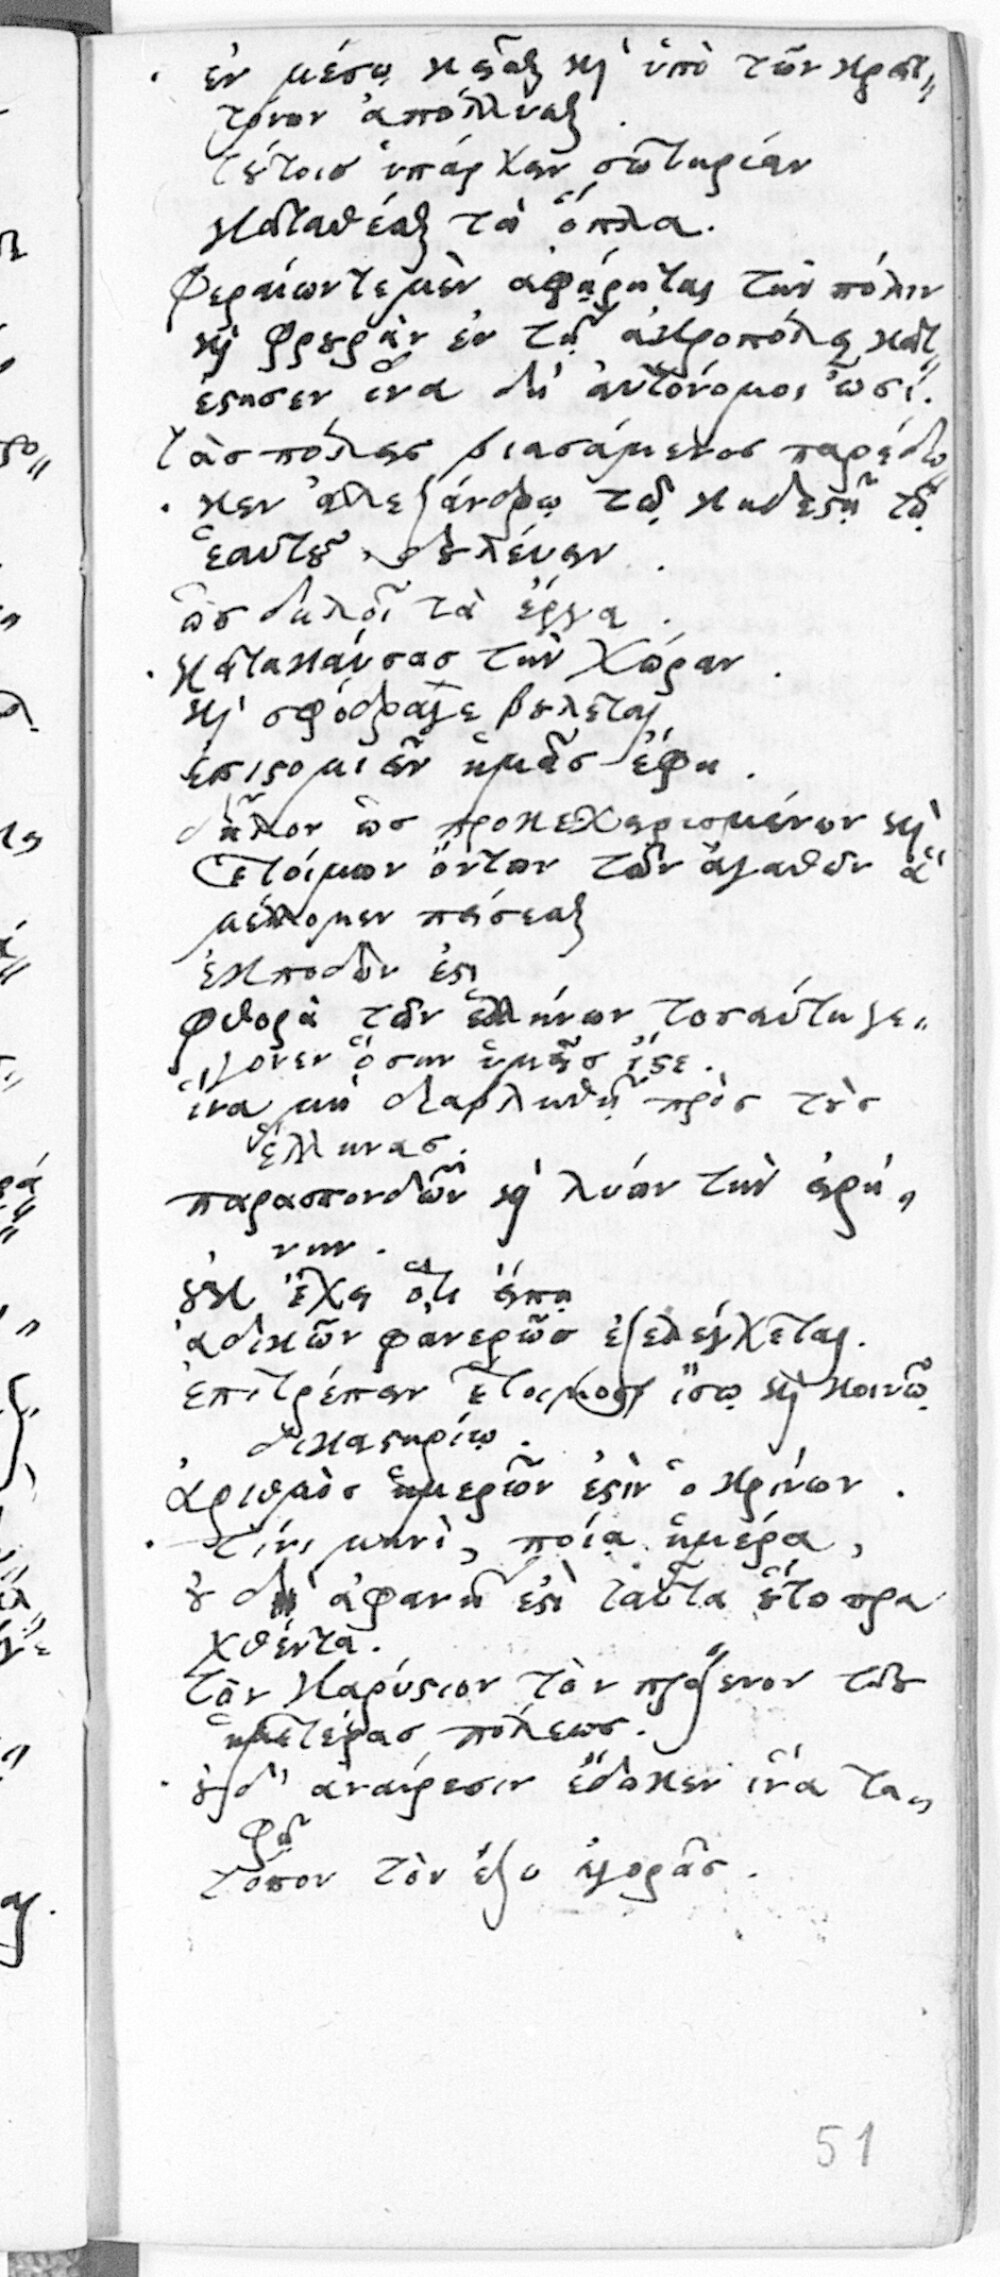 ἐν μέσῳ κεῖσθαι καὶ ὑπὸ τῶν κρατ〃
τόνων ἀπόλλυσθαι.
τούτοισ ὑπάρχειν σωτηρίαν
καταθέσθαι τὰ ὅπλα.
Φεραίων τε μὲν ἀφῄρηται τὴν πόλιν
καὶ φρουρὰν ἐν τῇ ἀκροπόλει κατ〃
έστησεν ἵνα δὴ αὐτόνομοι ὦσί.
τὰσ πόλεις βιασάμενοσ παρέδω〃
κεν ἀλεξάνδρῳ τῷ κηδεστῇ τῷ
ἑαυτοῦ δουλεύειν.
ὡσ δηλοῖ τὰ ἔργα.
κατακαύσασ τὴν χώραν.
καὶ σφόδρα γε βούλεται
ἐπιστομιεῖν ἡμᾶσ ἔφη.
δῆλον ὡσ προκεχειρισμένων καὶ
ἑτοίμων ὄντων τῶν ἀγαθῶν ἃ
μέλλομεν πείσεσθαι
ἐκποδών ἐστι
φθορὰ τῶν ἑλλήνων τοσαύτη γε〃
γονεν ὅσην ὑμεῖσ ἴστε.
ἵνα μὴ διαβληθῇ πρὸσ τοὺσ
ἕλληνασ.
παρασπονδῶν καὶ λύων τὴν εἰρή〃
νην.
οὐκ ἔχει ὅτι εἴπῃ
ἀδικῶν φανερῶσ ἐξελέγχεται.
ἐπιτρέπειν ἕτοιμοσ ἴσῳ καὶ κοινῷ
δικαστηρίῳ.
ἀριθμὸσ ἡμερῶν ἐστὶν ὁ κρίνων.
τίνι μηνὶ, ποίᾳ ἡμέρᾳ,
οὐ δὴ ἀφανῆ ἐστὶ ταῦτα οὕτω πρα
χθέντα.
τὸν καρύστιον τὸν πρόξενον τῆσ
ἡμετέρασ πόλεωσ.
οὐδ' ἀναίρεσιν ἔδωκεν ἵνα τα〃
φῇ
τόπον τὸν ἔξω ἀγορᾶσ.
51